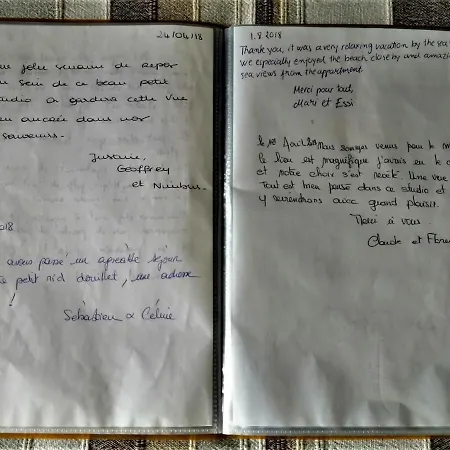 24/04/18
jolie semaine de repos
sein de ce beau petit
studio à gardera cette vue
ancrée dans nos
souvenirs.
Justine,
Geoffrey
et
2018
avons passé un agréable séjour
petit nid douillet, une adresse
!
Sébastien & Céline
1.8.2018
Thank you, it was a very relaxing vacation by the sea
We especially enjoyed the beach close by and amazi
sea views from the appartment.
Merci pour tout,
Mari et Essi
le 1er Août Nous sommes venus pour le m
le lieu est magnifique j'avais eu le c
et notre choix s'est révélé. Une vue
Tout est bien pensé dans ce studio et
y reviendrons avec grand plaisir.
Merci à vous
Claude et